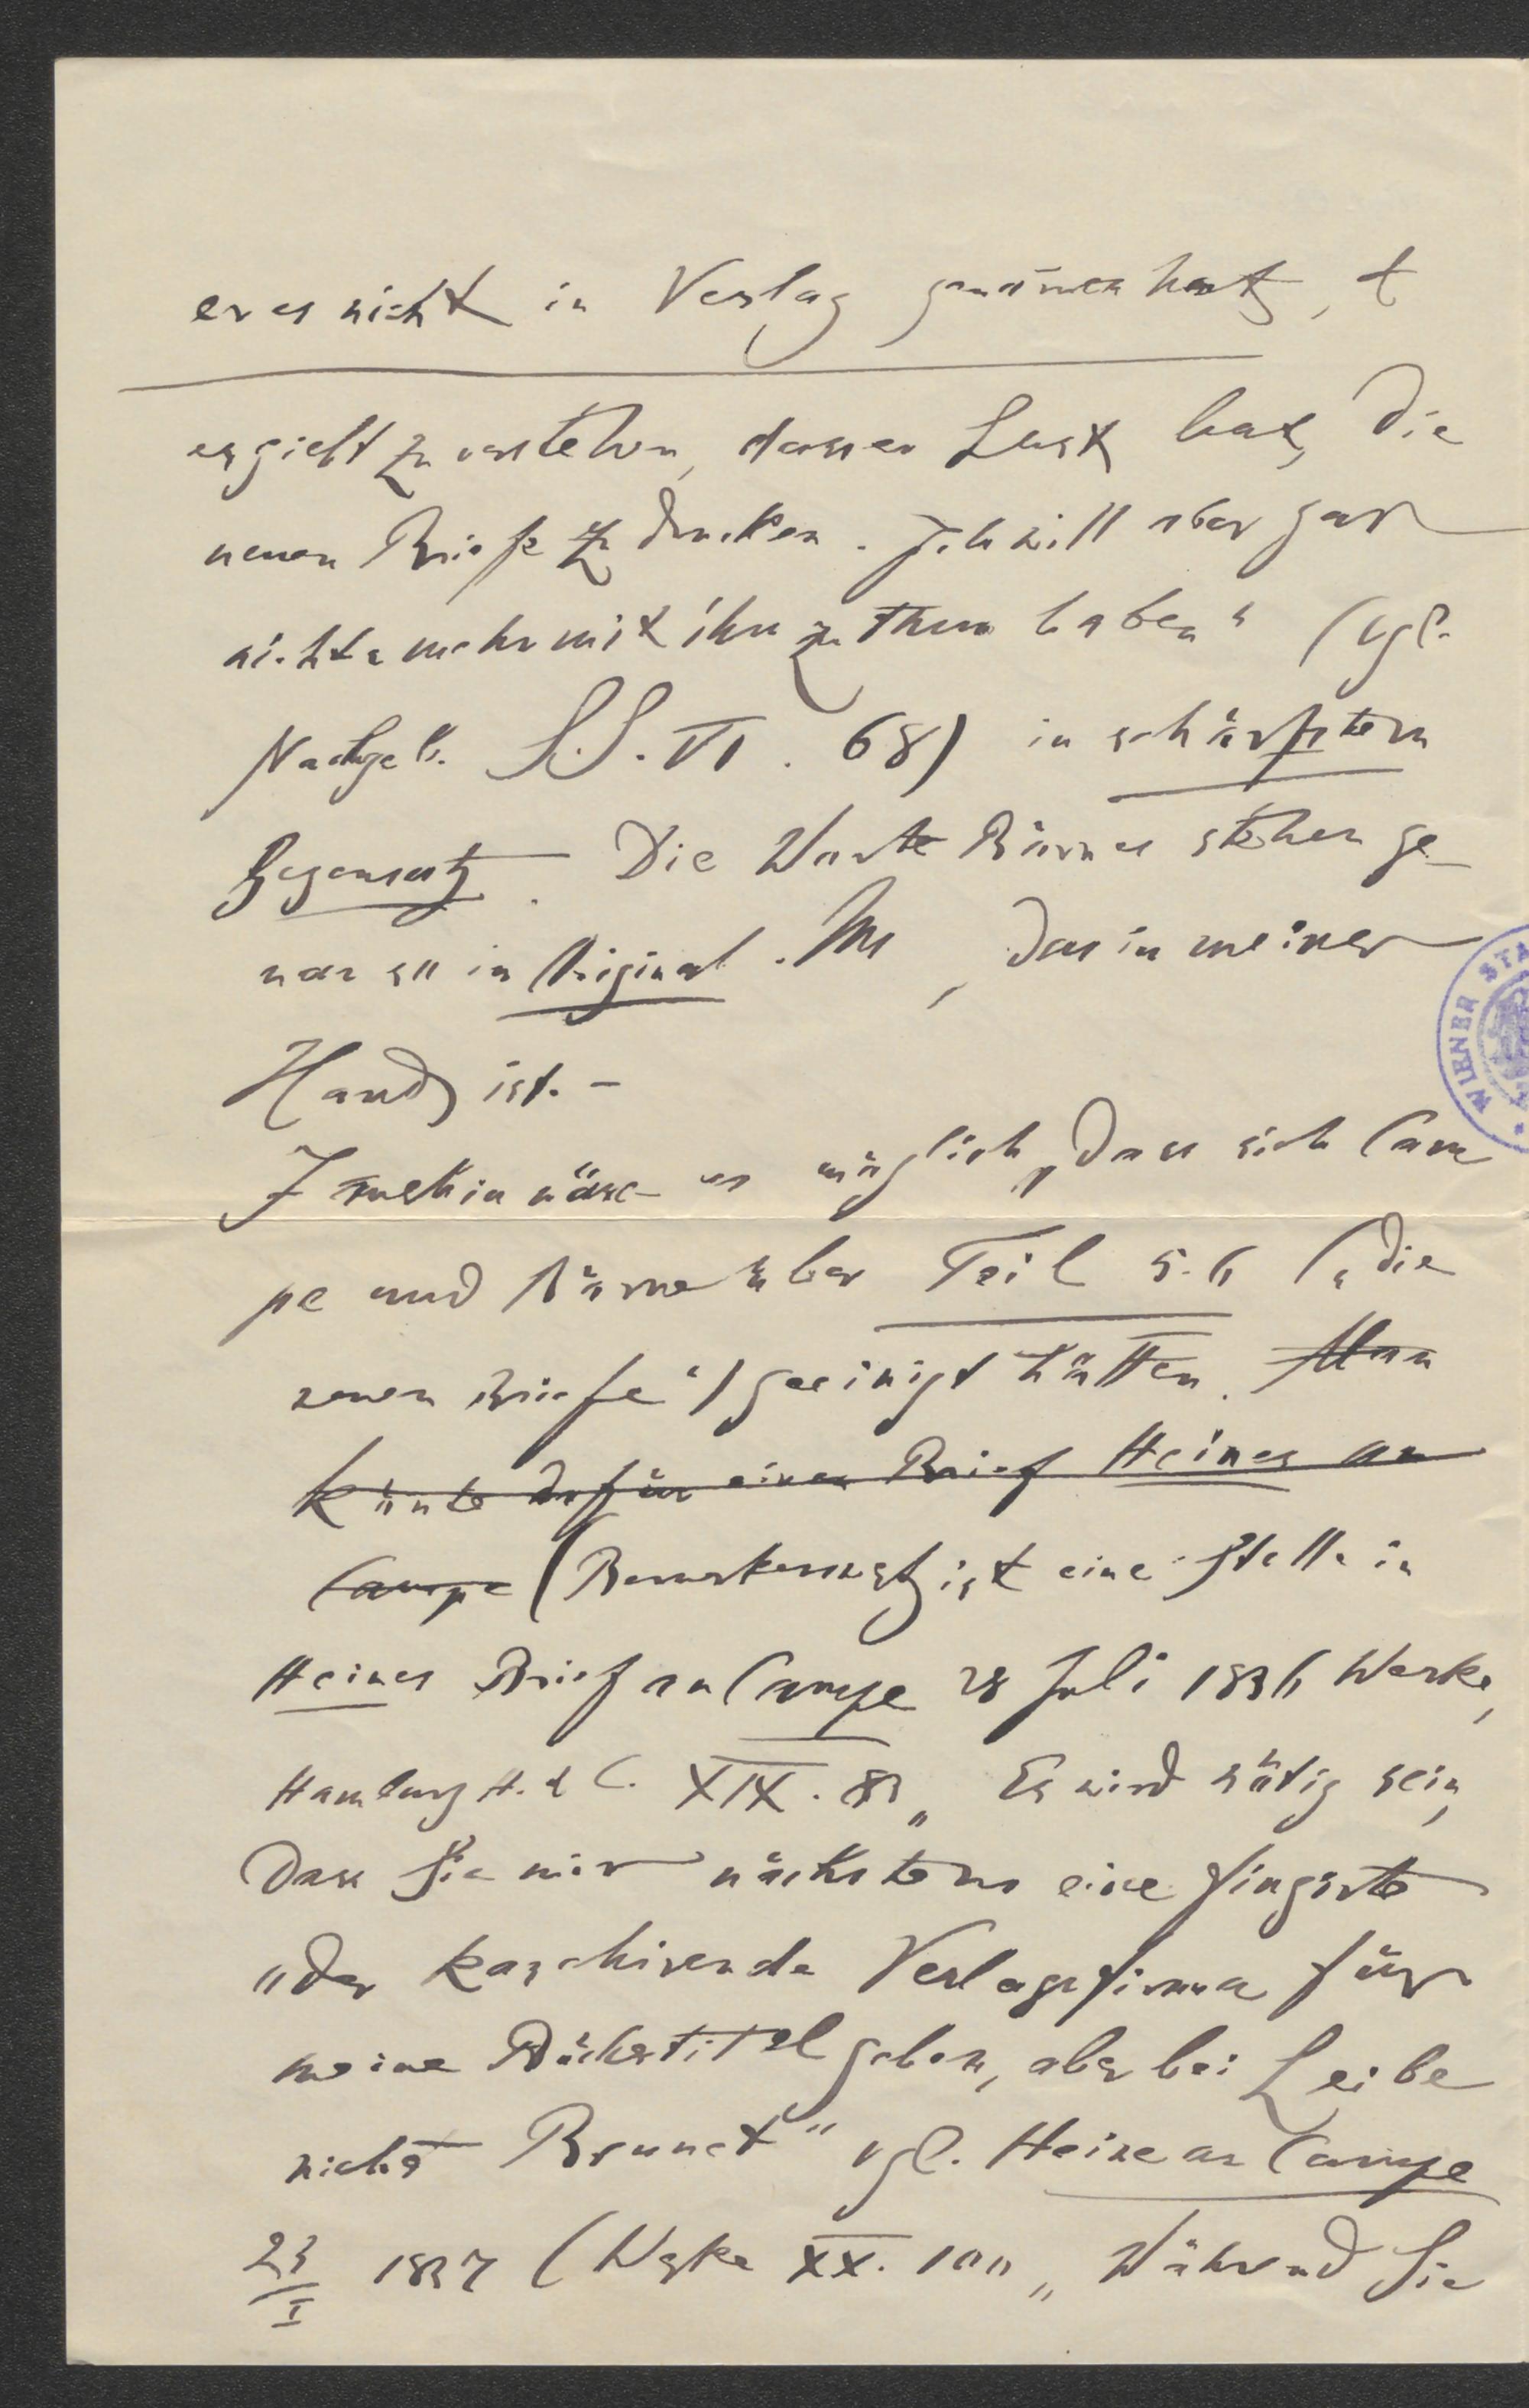 er es nicht in Verlag genom̄en hat,
er giebt zu verstehen, dass er Lust hat, die
neuen Briefe zu drucken. Ich will aber gar
nichts mehr mit ihm zu thun haben" (vgl.
Nachgel. S.S. VI. 68) in schärfstem
Gegensatz. Die Worte Börnes stehen ge-
nau so in Original. Ms, das in meiner
Hand ist. -
Im̄erhin wäre es möglich, dass sich Cam
pe und Börne über Teil 5.6 („die
neuen Briefe") geeinigt hätten. Man
kön̄te dafür einen Brief Heines an
Campe (Bemerkenswert ist eine Stelle in
Heines Brief an Campe 28 Juli 1836 Werke,
Hamburg H. & C. XIX. 83 „Es wird nötig sein,
dass Sie mir nächstens eine fingirte
oder kaschirende Verlagsfirma für
meine Büchertitel geben, aber bei Leibe
nicht Brunet" vgl. Heine an Campe
23/I 1837 (Werke XX. 100 „Während Sie
WIENER STA